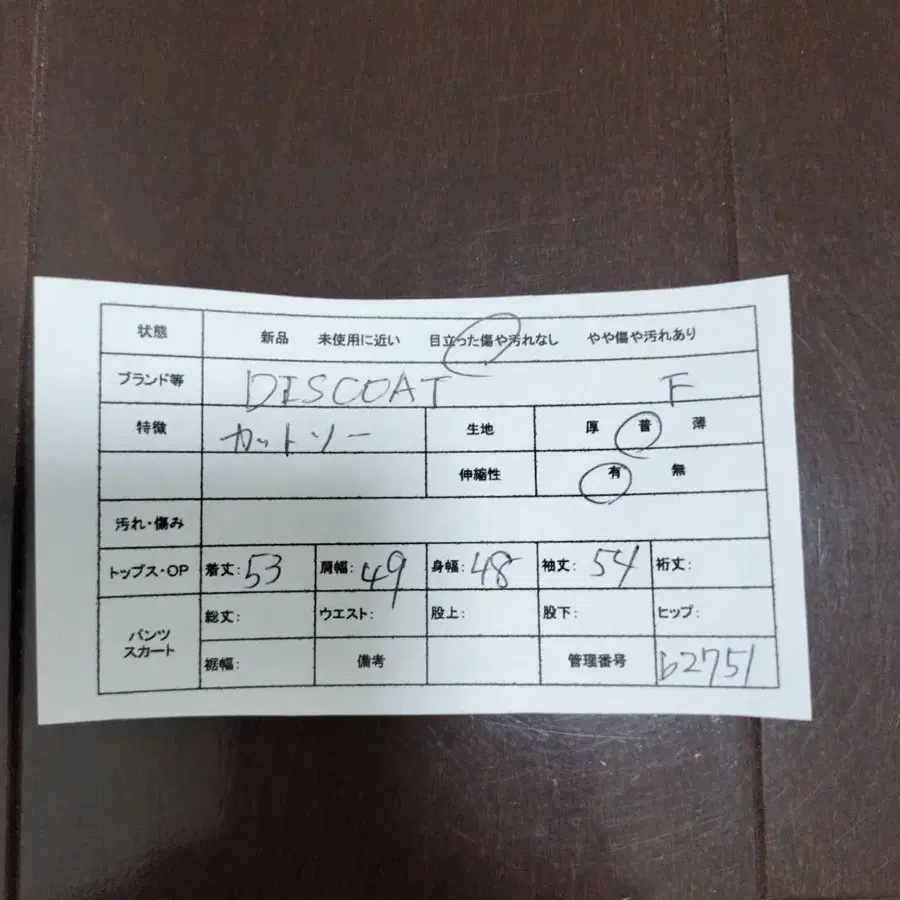 状態 新品 未使用に近い 目立った傷や汚れなし やや傷や汚れあり
ブランド等 DISCOAT F
特徴 カットソー 生地 厚 普 薄
伸縮性 有 無
汚れ・傷み
トップス・OP 着丈:53 肩幅:49 身幅:48 袖丈:54 裄丈:
パンツ スカート 総丈: ウエスト: 股上: 股下: ヒップ:
裾幅: 備考 管理番号 62751